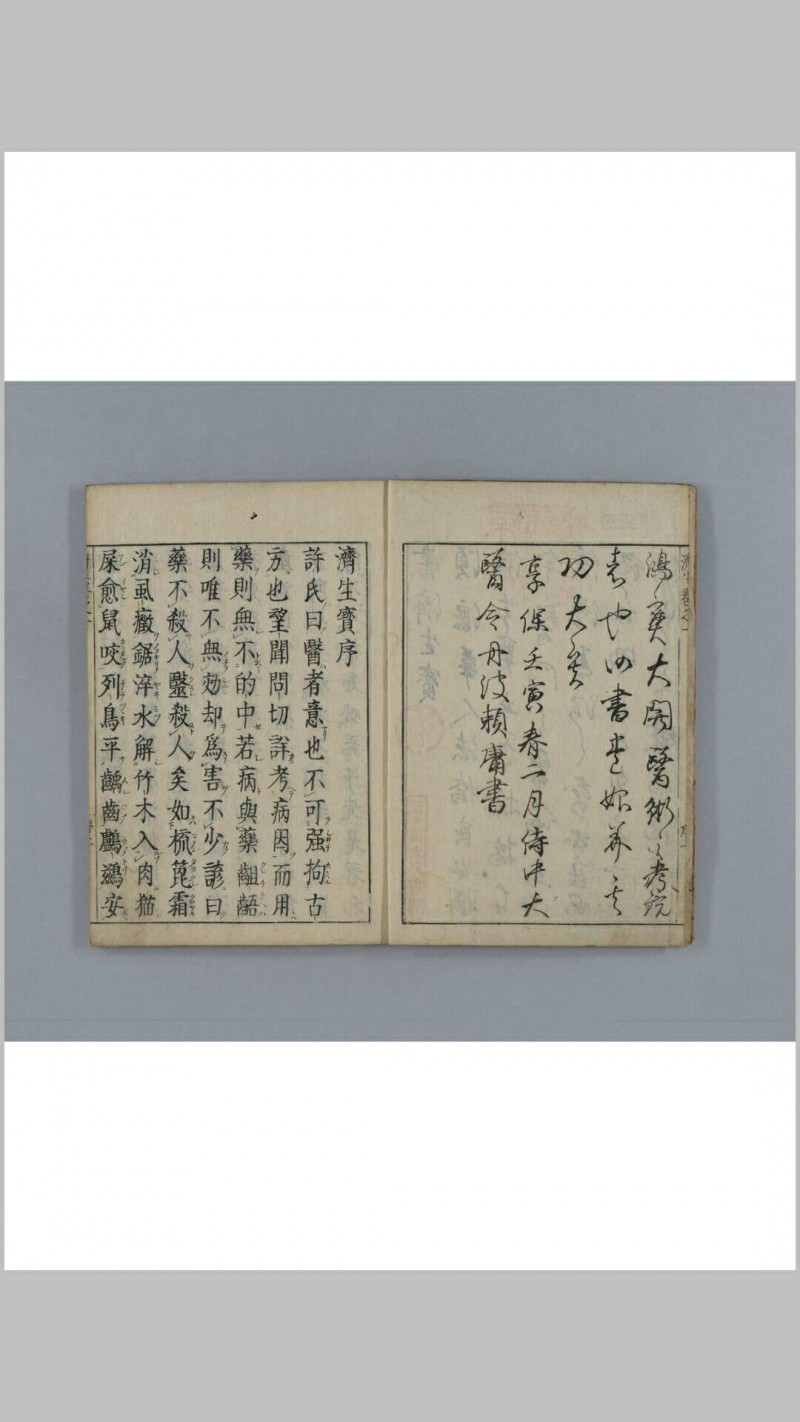 大開醫術之
者也此書
功大矣
享保壬寅春二月侍中大
醫令丹波賴庸書
濟生寶序
許氏曰醫者意也不可强拘古
方也望聞問切詳考病因而用
藥則無不的中若病與藥齟齬
則唯不無効却爲害不少諺曰
藥不殺人醫殺人矣如梳篦霜
消虱癥鋸淬水解竹木入肉猫
屎愈鼠咬列鳥平齲齒鸕鷀安